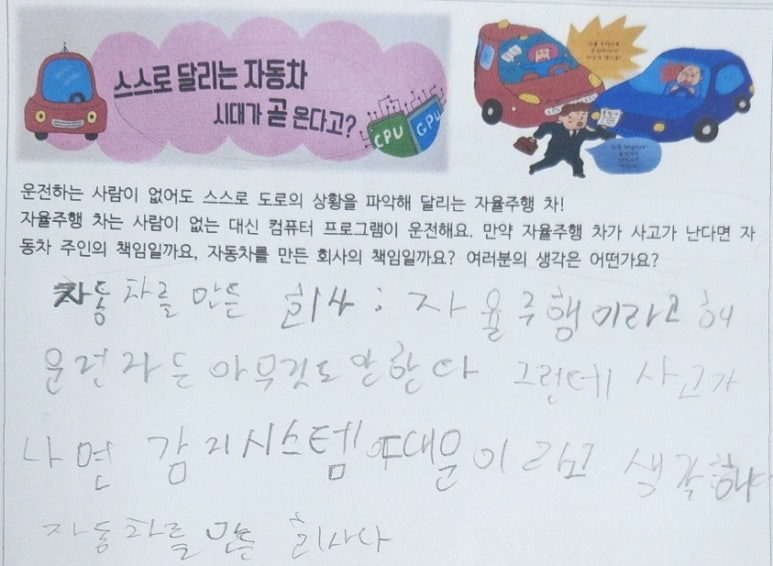 스스로 달리는 자동차
시대가 곧 온다고?
CPU
GPU
운전하는 사람이 없어도 스스로 도로의 상황을 파악해 달리는 자율주행 차!
자율주행 차는 사람이 없는 대신 컴퓨터 프로그램이 운전해요. 만약 자율주행 차가 사고가 난다면 자
동차 주인의 책임일까요, 자동차를 만든 회사의 책임일까요? 여러분의 생각은 어떤가요?
자동차를 만든 회사 : 자율주행이라고 해
운전자는 아무것도 안한다 그런데 사고가
나면 감지시스템 때문이라고 생각해
자동차를 만든 회사다